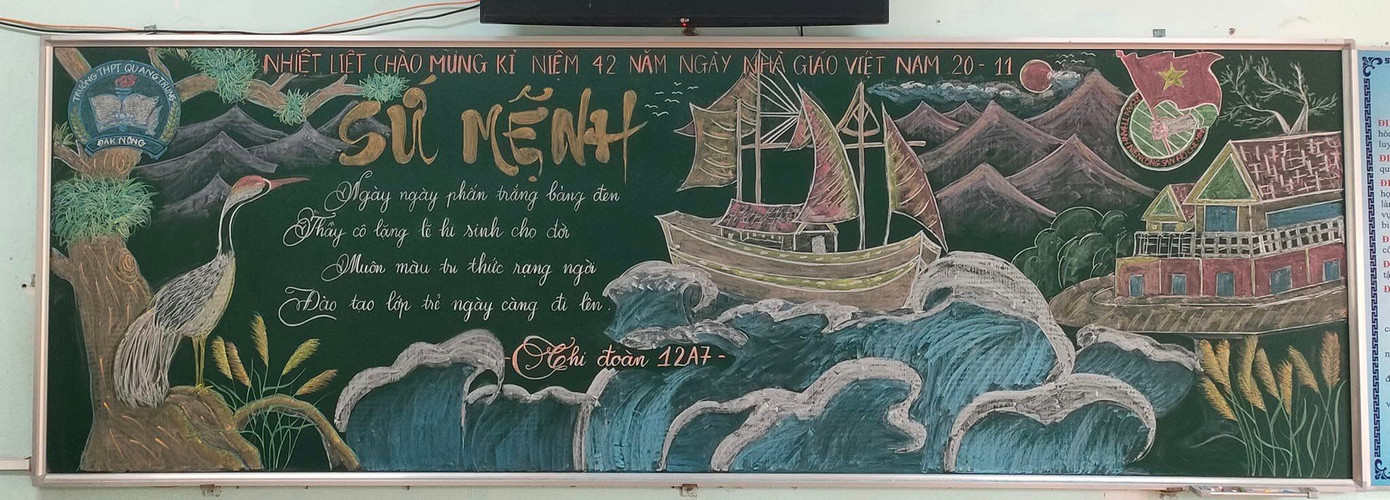 NHIỆT LIỆT CHÀO MỪNG KỈ NIỆM 42 NĂM NGÀY NHÀ GIÁO VIỆT NAM 20 - 11
TRƯỜNG THPT QUANG TRUNG
ĐĂK NÔNG
SỨ MỆNH
Ngày ngày phấn trắng bảng đen
Thầy cô lặng lẽ hi sinh cho đời
Muôn màu tri thức rạng ngời
Đào tạo lớp trẻ ngày càng đi lên.
-Chi đoàn 12A7-